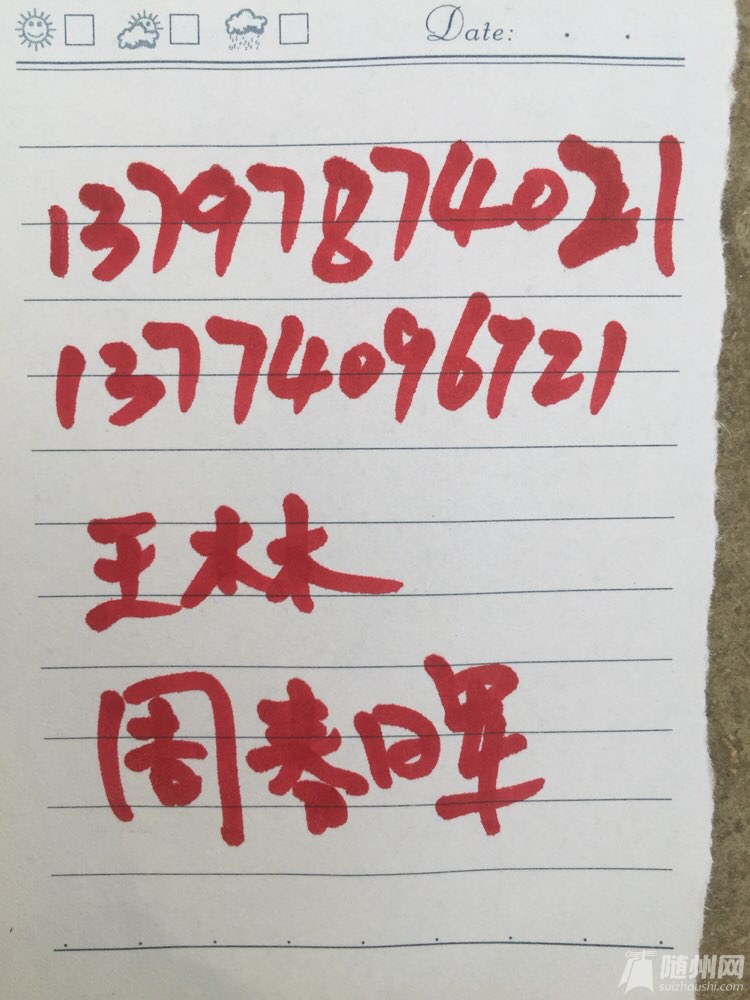 Date: . .
13797874021
13774096721
王林
周春晖
随州网
suizhoushi.com